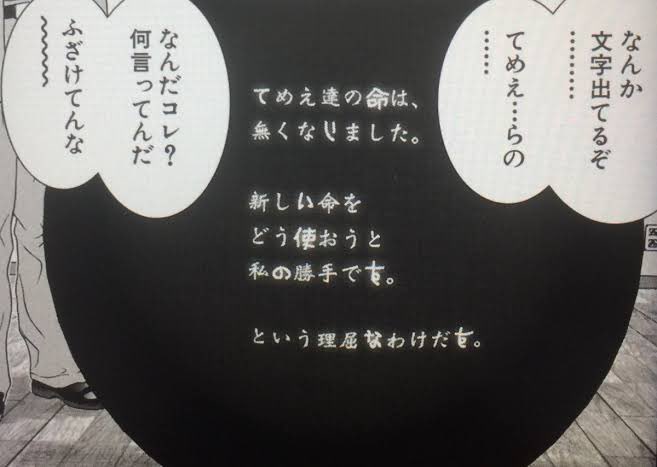 なんか
文字出てるぞ
…………
てめえ…らの
……
てめえ達の命は、
無くなりました。
新しい命を
どう使おうと
私の勝手です。
という理屈なわけだす。
なんだコレ?
何言ってんだ
ふざけてんな